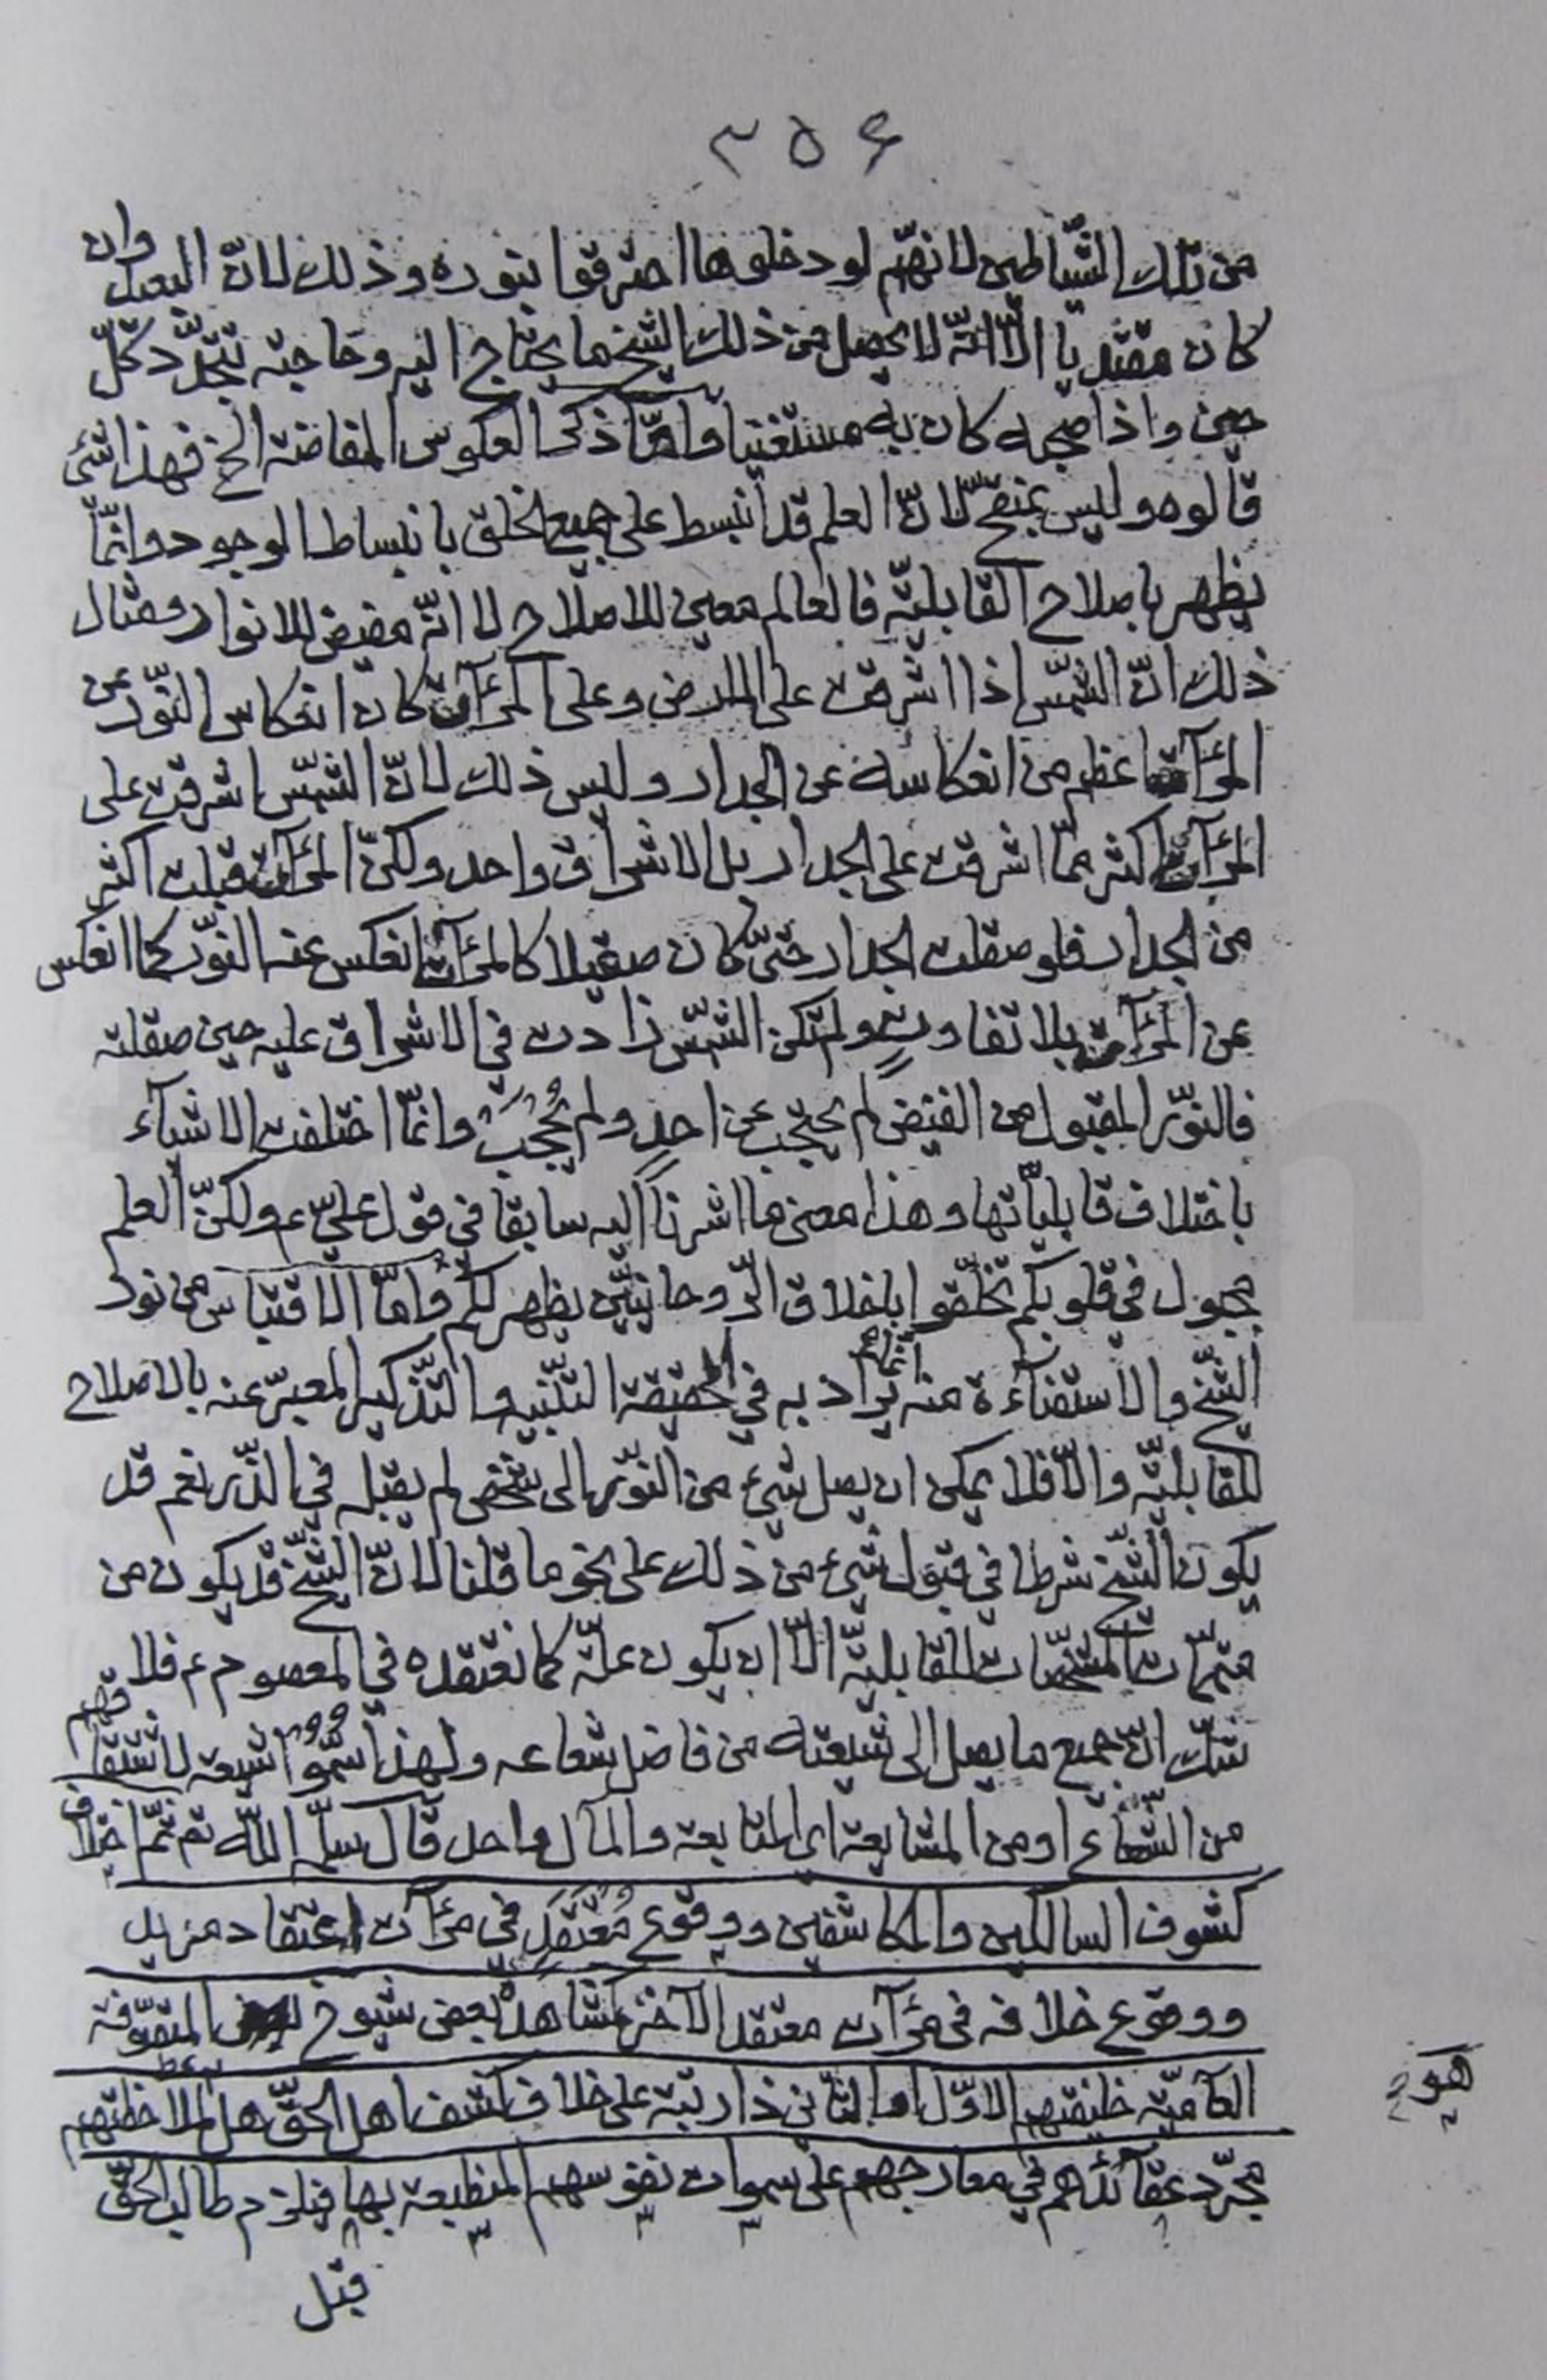 ٣٥۶
من تلك الشّياطين لانهّم لو دخلوها احترقوا بنوره وذلك لانّ البعيد وان
كان مقتديا الّا انّه لا يحصل من ذلك الشيخ ما يحتاج اليه وحاجته تتجدّد كلّ
حين واذا صحبه كان به مستغنيا وامّا ذكر العكوس المفاضة الخ فهذا شئ
قالوه وليس بمنقّح لانّ العلم قد انبسط على جميع الخلق بانبساط الوجود وانمّا
يظهر باصلاح القابليّة فالعالم معين للاصلاح لا انّه مفيض للانوار ومثال
ذلك انّ الشّمس اذا اشرقت على الارض وعلى المرآت كان انعكاس النّور عن
المرآت اعظم من انعكاسه عن الجدار وليس ذلك لانّ الشّمس اشرقت على
المرآت اكثر ممّا اشرقت على الجدار بل الاشراق واحد ولكنّ المرآت قبلت اكثر
من الجدار فلو صقلت الجدار حتىّ كان صقيلا كالمرآت انعكس عنه النّور كما انعكس
عن المرآت بلا تفاوتٍ ولم تكن الشّمس زادت في الاشراق عليه حين صقلته
فالنوّر المقبول من الفيض لم يحتجب عن احدٍ ولم يُحْجَبْ وانمّا اختلفت الاشيآء
باختلاف قابليّاتها وهذا معنى ما اشرنا اليه سابقا في قول عليّ ع ولكنّ العلم
مجبول في قلوبكم تخلّقوا باخلاق الرّوحانيّين يظهر لكم وامّا الاقتباس من نور
الشّيخ والاستضآءة منه انما يراد به في الحقيقة التّنبيه والتّذكير المعبّر عنه بالاصلاح
للقابليّة والّا فلا يمكن ان يصل شيء من النوّر الى شخص لم يقبله في الذّر نعم قد
يكون الشّيخ شرطا في قبول شيء من ذلك على نحو ما قلنا لانّ الشّيخ قد يكون من
متمّمات المشخّصات للقابليّة الّا ان يكون علّة كما نعتقده في المعصوم ع فلا
شكّ انّ جميع ما يصل الى شيعته من فاضل شعاعه ولهذا سُمُّوا شيعة لاشتقاقهم
من الشّعاع او من المشايعة اى المتابعة والمآل واحد قال سلّمه اللّه تع ثمّ اختلاف
كشوف السالكين والمكاشفين ووقوع مُعْتَقَدٍ في مرآت اعتقاد مريد
ووقوع خلافه في مرآت معتقد الآخر كمشاهدة بعض شيوخ المتصوّفة
العآميّة خليفتهم الاوّل او الثاني ذا رتبة على خلاف كشف اهل الحقّ هل لملاحظتهم
هو
مجرّد عقآئدهم في معارجهم على سموات نفوسهم المنطبعة بها فيلزم طالب الحقّ
قبل